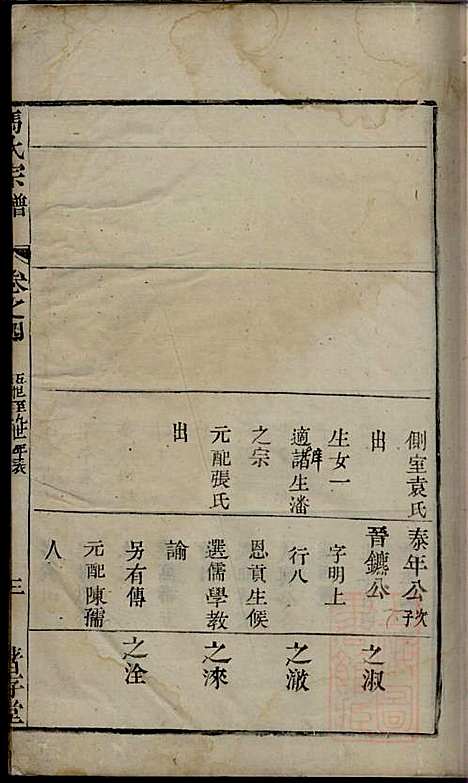 側室袁氏
生女一
適諸生潘
之宗
元配張氏
出
泰年公次子
晉鑣公
出
字明上
行八
恩貢生候
選儒學教
諭
另有傳
元配陳孺
人
之淑
之澈
之淶
之淦
氏宗譜
卷之四
三